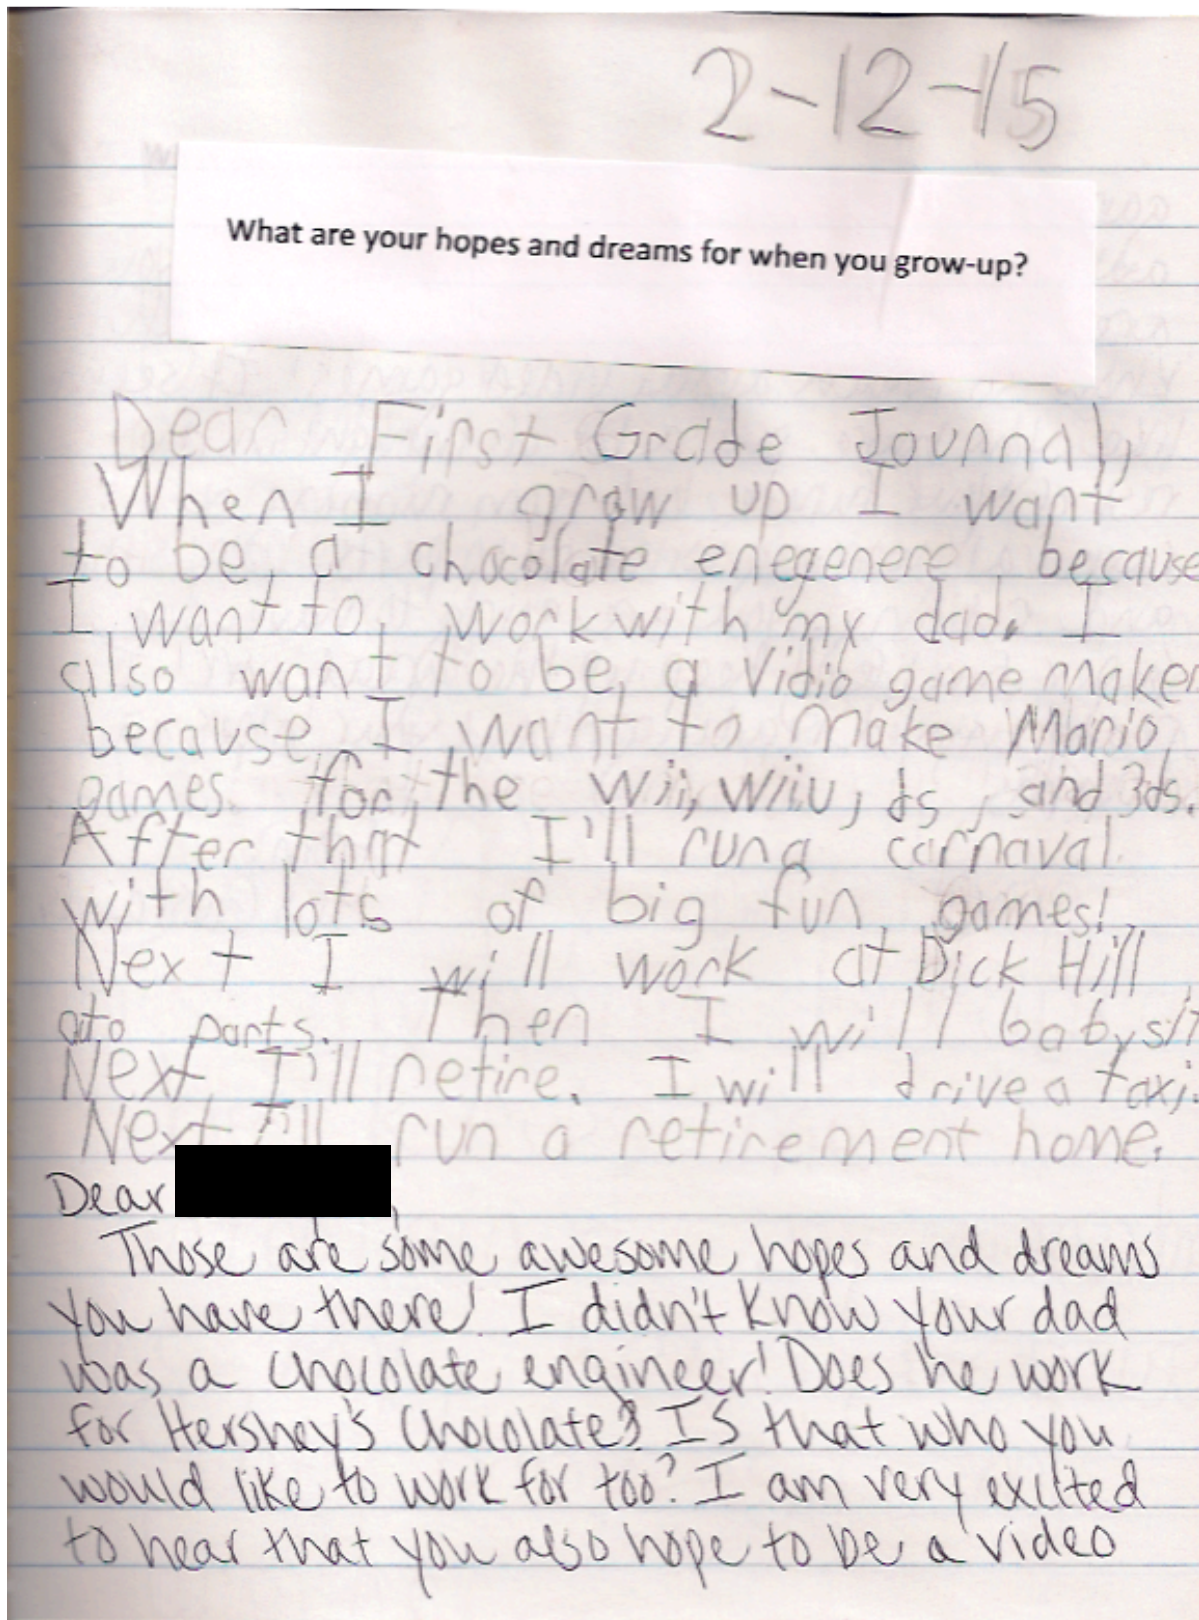 2-12-15
What are your hopes and dreams for when you grow-up?
Dear First Grade Journal,
When I grow up I want
to be a chocolate enegenere because
I want to work with my dad. I
also want to be a vidio game maker
because I want to make Mario
games for the Wii, Wiiu, ds, and 3ds.
After that I'll run a carnaval
with lots of big fun games!
Next I will work at Dick Hill
auto parts. Then I will babysit
Next I'll retire. I will drive a taxi.
Next I'll run a retirement home.
Dear
Those are some awesome hopes and dreams
you have there! I didn't know your dad
was a chocolate engineer! Does he work
for Hershey's Chocolate? Is that who you
would like to work for too? I am very excited
to hear that you also hope to be a video